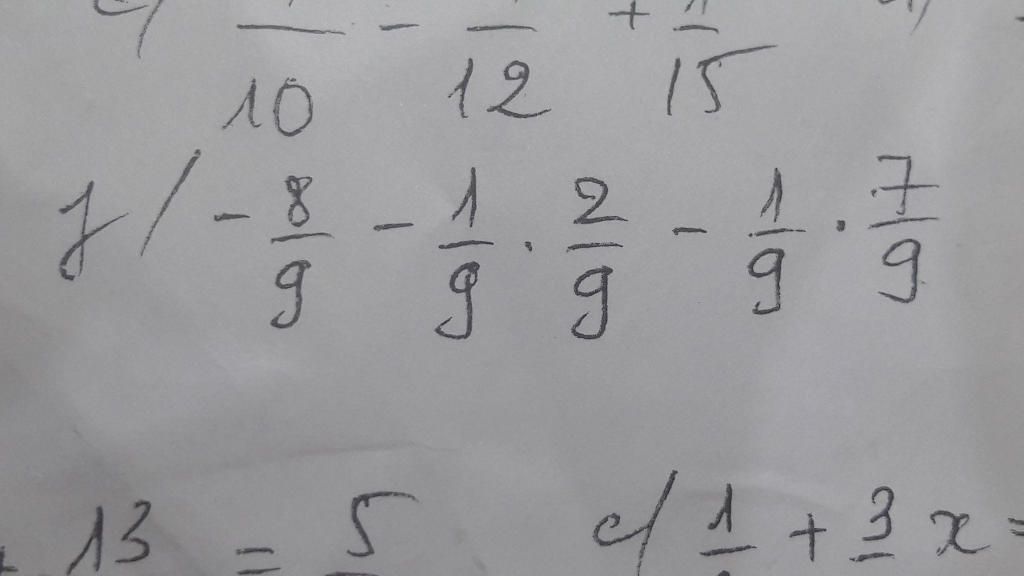 10 - 12 + 15
f/ - 8/9 - 1/9 . 2/9 - 1/9 . 7/9
13 = 5 c/ 1 + 3 x =